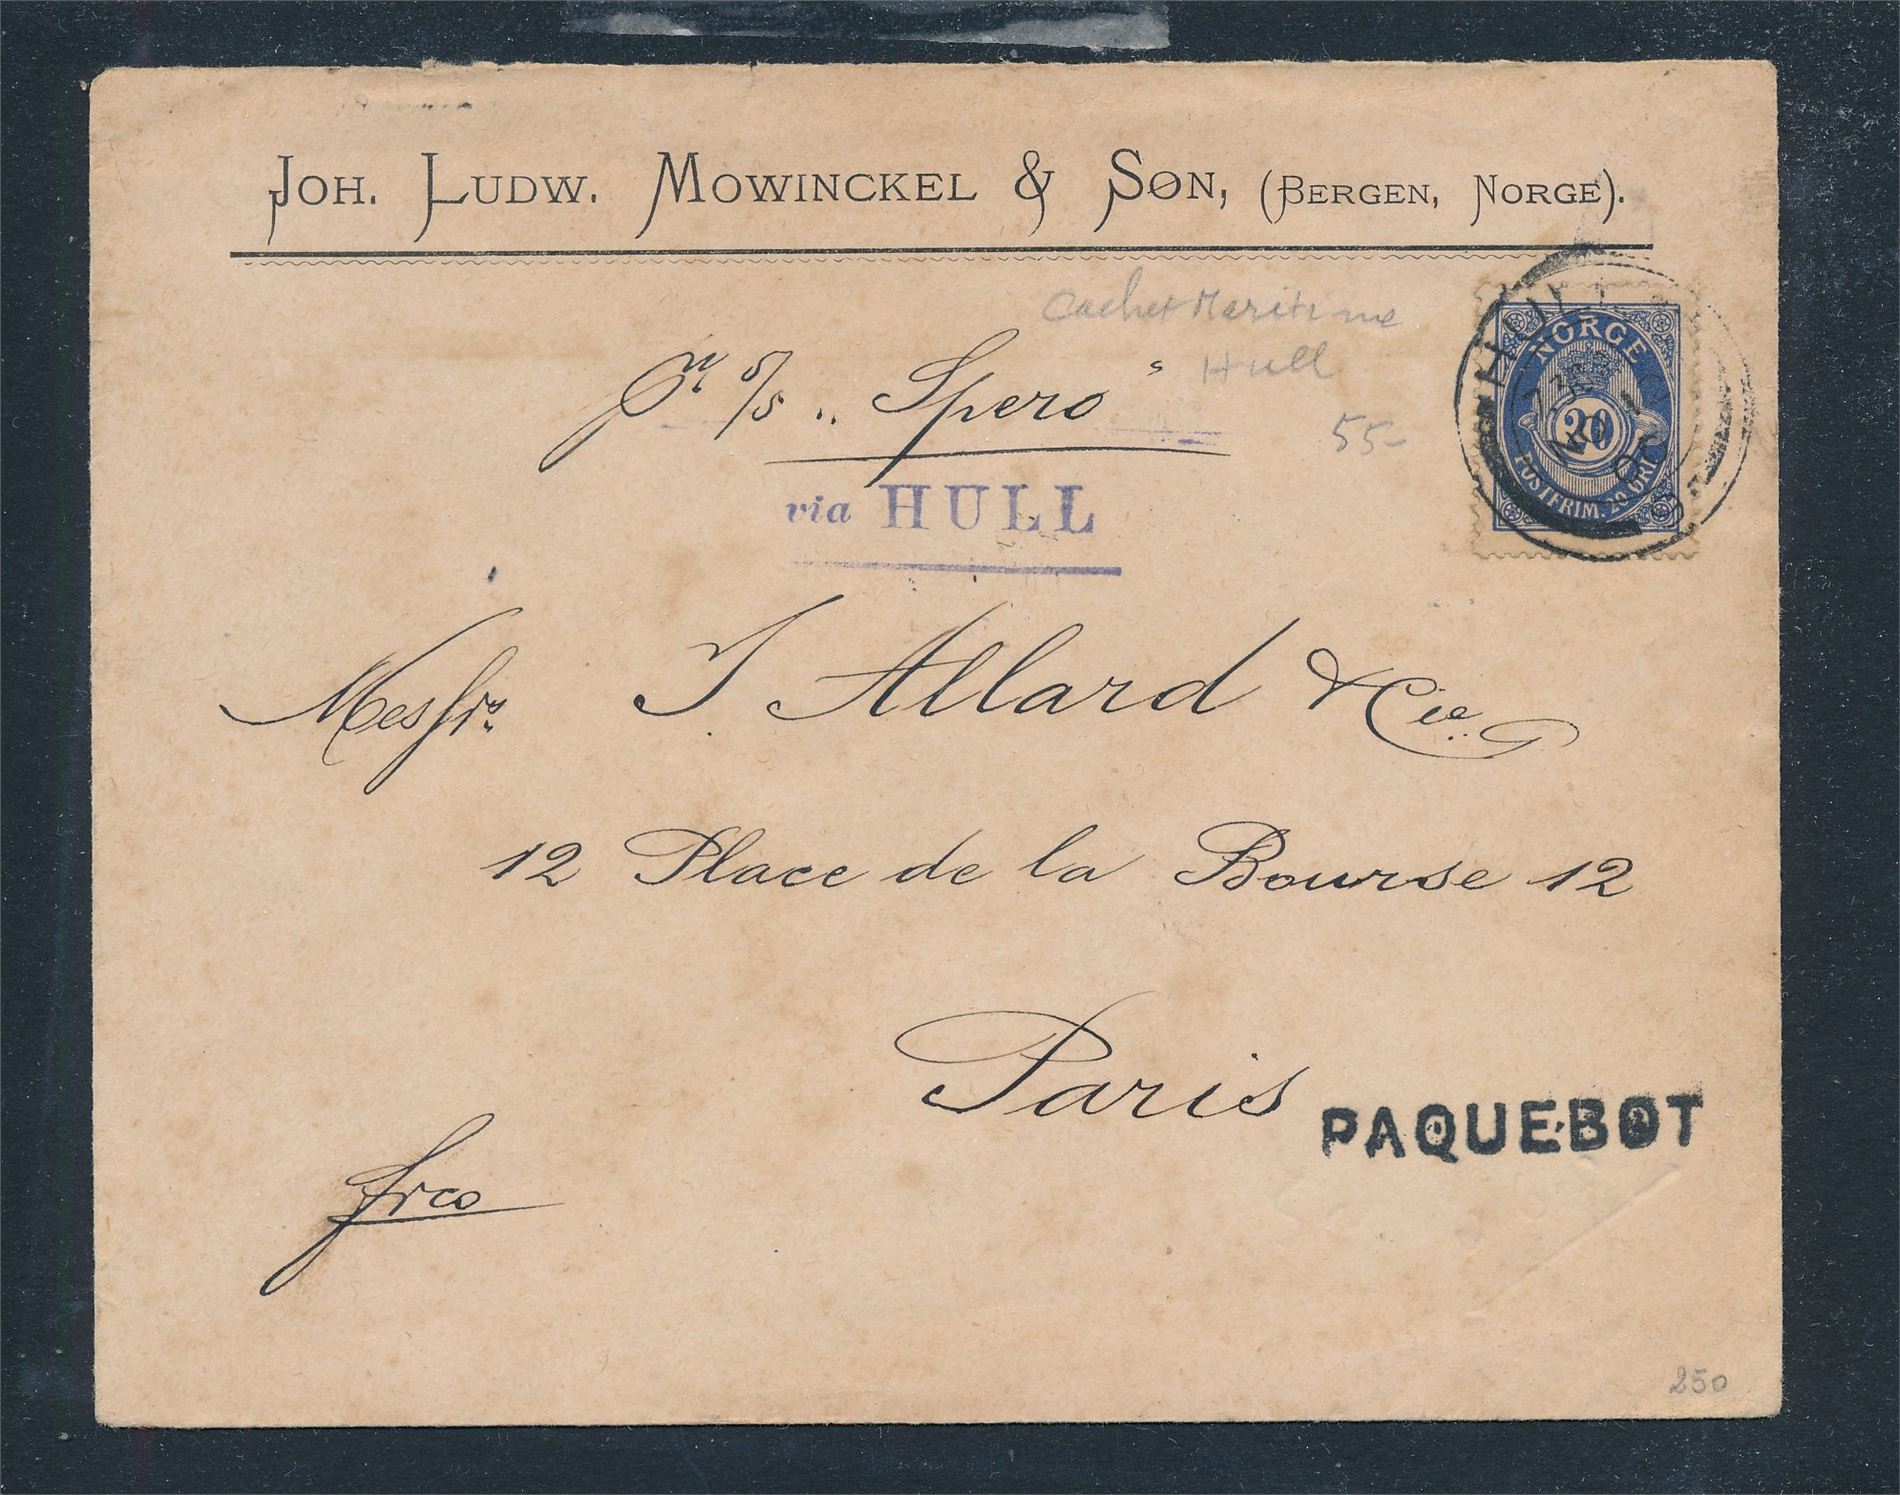 JOH. LUDW. MOWINCKEL & SØN, (BERGEN, NORGE).
Cachet Maritime
Hull
pr S/S „Spero“
55-
via HULL
HULL
NORGE
20
POSTFRIM. 20 ØRE
Messrs. J Allard & Cie.
12 Place de la Bourse 12
Paris
PAQUEBOT
frco
250